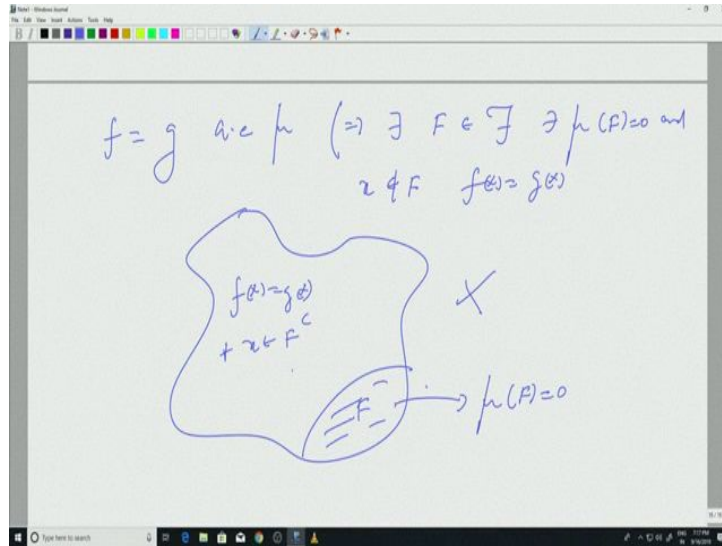 Note1 - Windows Journal
File Edit View Insert Actions Tools Help
f = g a.e μ (⇒ ∃ F ∈ ℱ ∋ μ(F)=0 and
x ∉ F f(x) = g(x)
f(x)=g(x)
∀ x ∈ F^c
X
F
→ μ(F)=0
Type here to search
ENG 7:17 PM
IN 9/16/2019